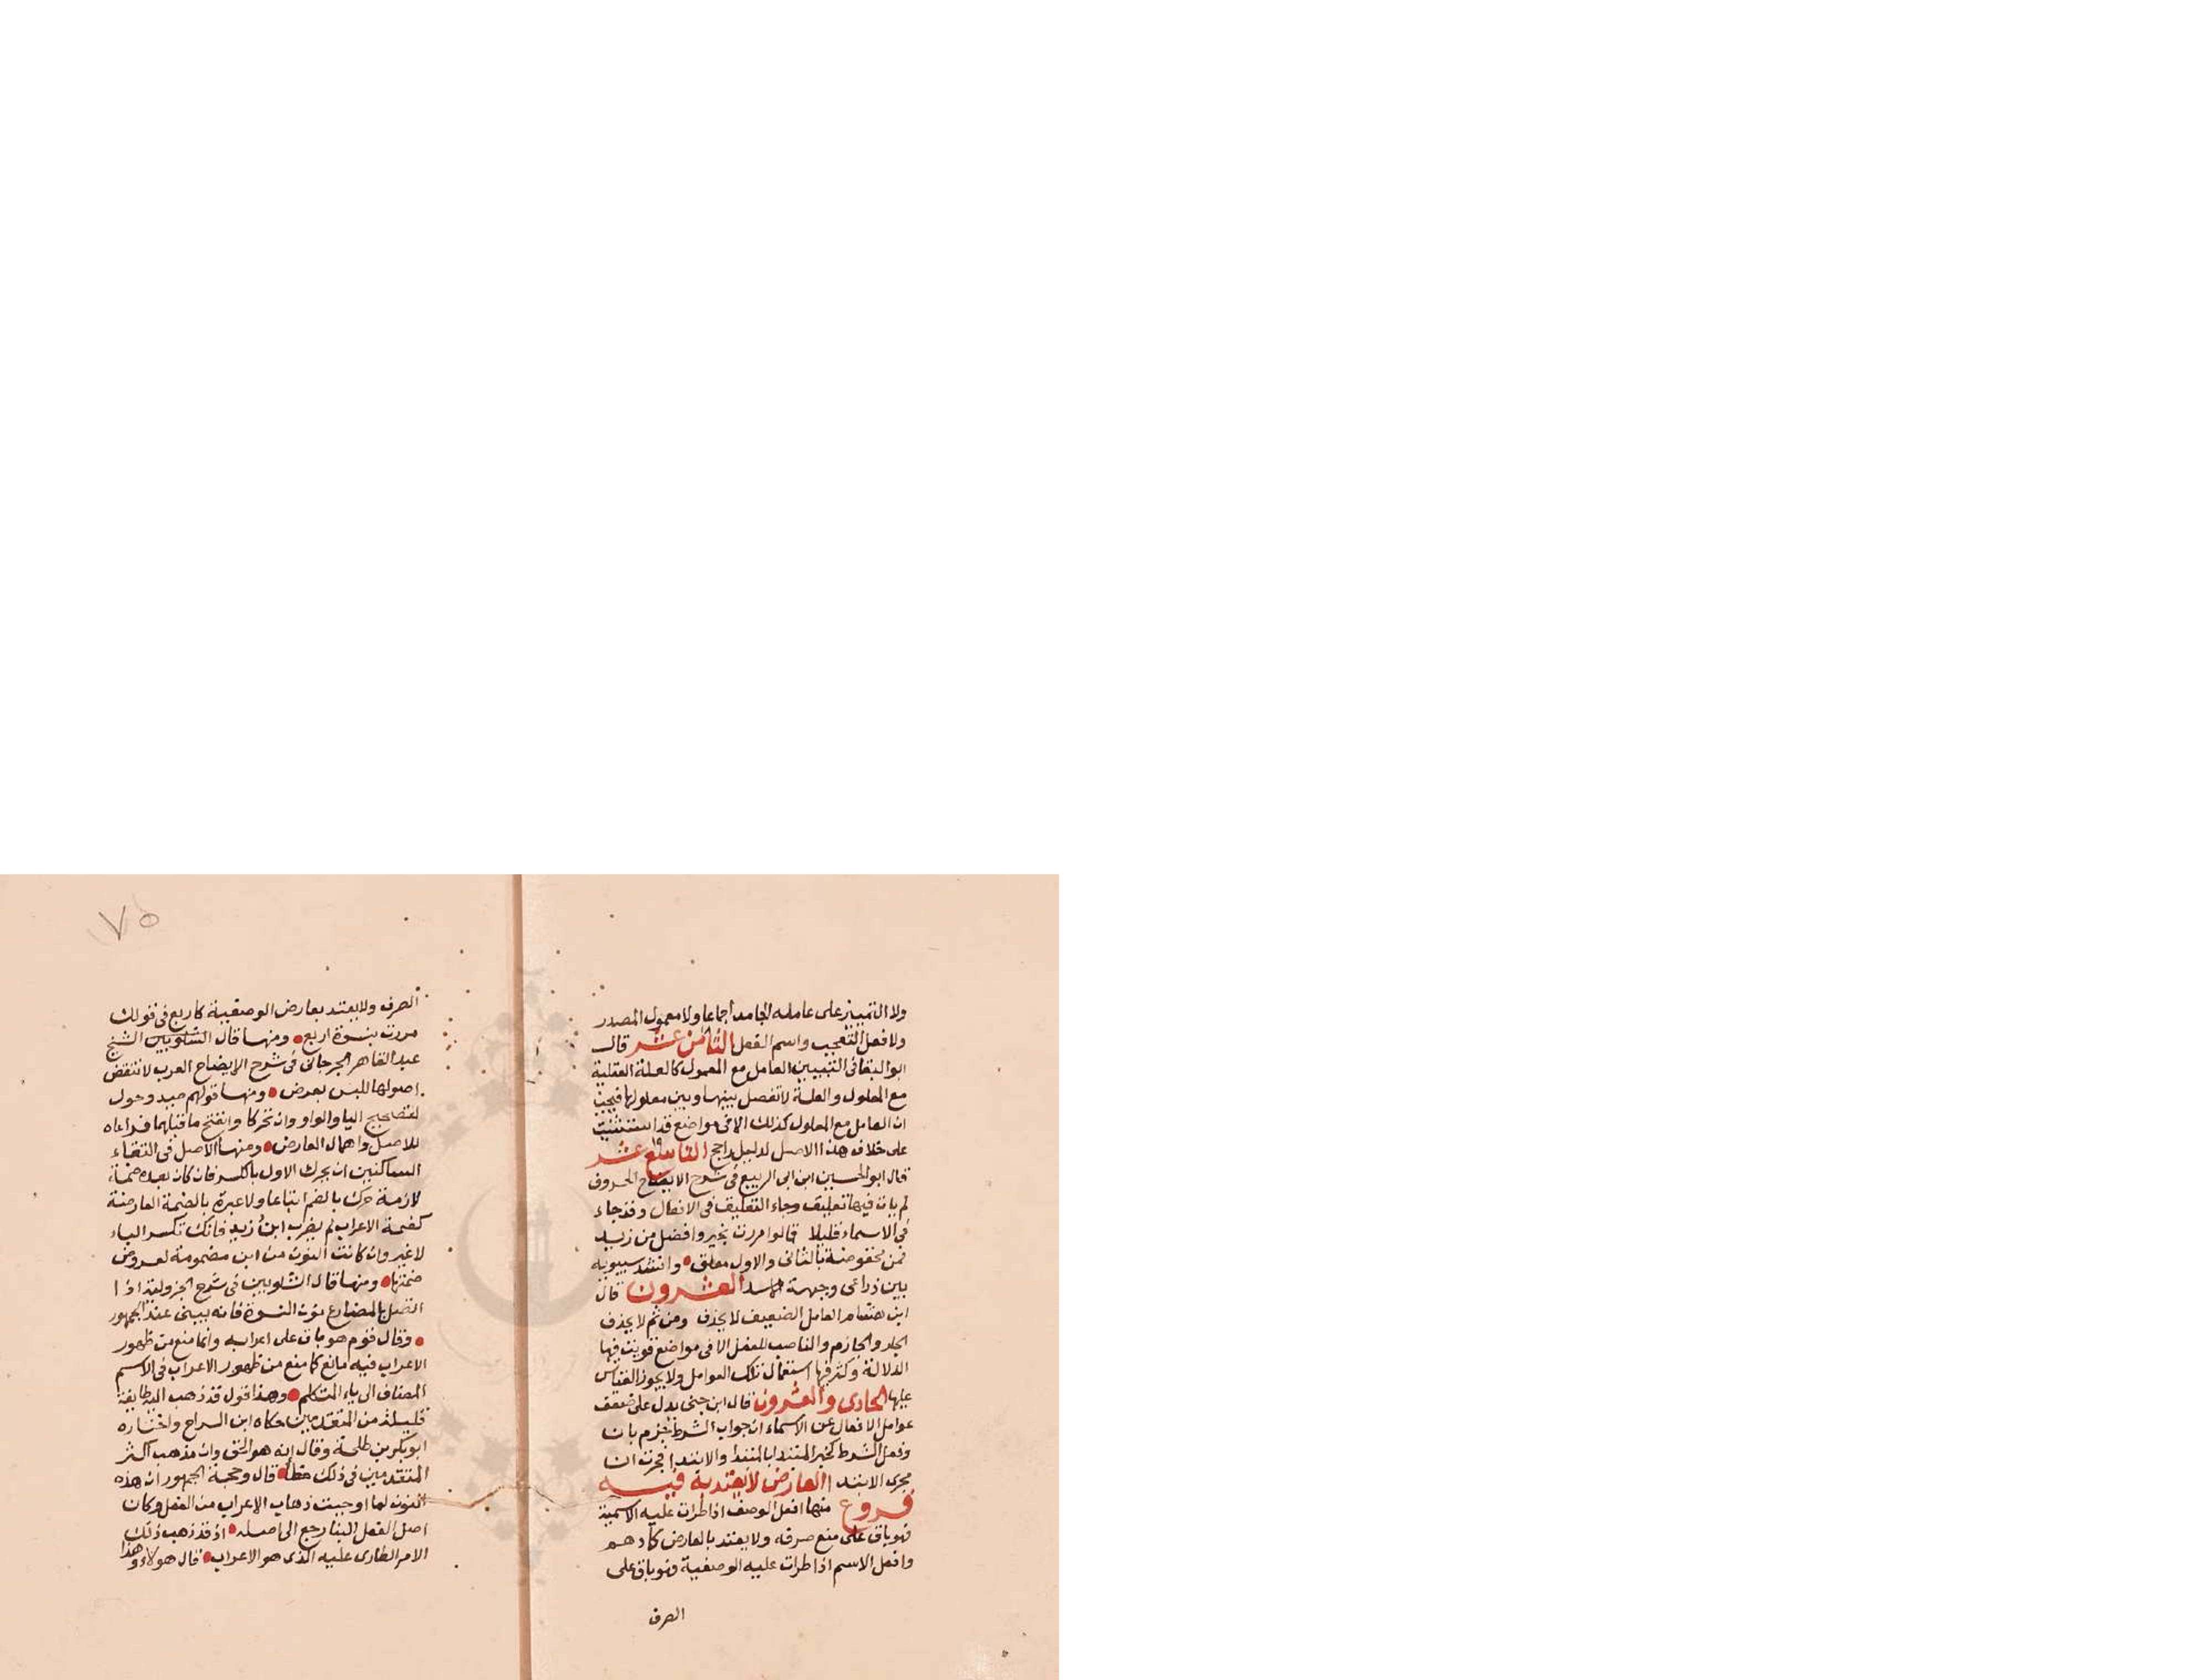 ولا التمييز على عامله الجامد اجماعا ولا معمول المصدر
ولا فعل التعجب واسم الفعل الثامن عشر قال
ابو البقا في التبيين العامل مع المعمول كالعلة العقلية
مع المعلول والعلة لا تفصل بينها وبين معلولها فيجب
ان العامل مع المعلول كذلك الا في مواضع قد استثنيت
على خلاف هذا الاصل لدليل راجح التاسع عشر
١٩
قال ابو الحسين ابن ابي الربيع في شرح الايضاح الحروف
لم يات فيها تعليق وجاء التعليق في الافعال وقد جاء
في الاسماء قليلا قالوا مررت بخير وافضل من زيد
فمن مخفوضة بالثاني والاول معلق وانشد سيبويه
بين ذراعي وجبهة الاسد العشرون قال
ابن هشام العامل الضعيف لا يحذف ومن ثم لا يحذف
الجار والجازم والناصب للفعل الا في مواضع قويت فيها
الدلالة وكثر فيها استعمال تلك العوامل ولا يجوز القياس
عليها الحادي والعشرون قال ابن جني يدل على ضعف
عوامل الافعال عن الاسماء ان جواب الشرط جزم بان
وفعل الشرط كخبر المبتدا بالمبتدا والابتدا فجرت ان
مجرى الابتدا العارض لا يعتد به فيه
فروع منها افعل الوصف اذا طرات عليه الاسمية
فهو باق على منع صرفه ولا يعتد بالعارض كادهم
وافعل الاسم اذا طرات عليه الوصفية فهو باق على
الصرف
٧٥
الصرف ولا يعتد بعارض الوصفية كاربع في قولك
مررت بنسوة اربع ومنها قال الشلوبين الشيخ
عبد القاهر الجرجاني في شرح الايضاح العرب لا تنقض
اصولها للبس يعرض ومنها قولهم صيد وحول
لتصحيح اليا والواو وان تحركا وانفتح ما قبلهما مراعاه
للاصل واهمال العارض ومنها الاصل في التقاء
الساكنين ان يحرك الاول بالكسر فان كان بعده ضمة
لازمة حرك بالضم اتباعا ولا عبرة بالضمة العارضة
كضمة الاعراب لم يضرب ابن زيد فانك تكسر الباء
لا غير وان كانت النون من ابن مضمومة لعروض
ضمتها ومنها قال الشلوبين في شرح الجزولية اذا
اتصل بالمضارع نون النسوة فانه يبنى عند الجمهور
وقال قوم هو باق على اعرابه وانما منع من ظهور
الاعراب فيه مانع كما منع من ظهور الاعراب في الاسم
المضاف الى ياء المتكلم وهذا قول قد ذهب اليه طايفة
قليلة من المتقدمين حكاه ابن السراج واختاره
ابو بكر بن طلحة وقال انه هو الحق وان مذهب اكثر
المتقدمين في ذلك خطأ قال وحجة الجمهور ان هذه
النون لما اوجبت ذهاب الاعراب من الفعل وكان
اصل الفعل البنا رجع الى اصله اذ قد ذهب ذلك
الامر الطارى عليه الذى هو الاعراب قال هولاء وهذا